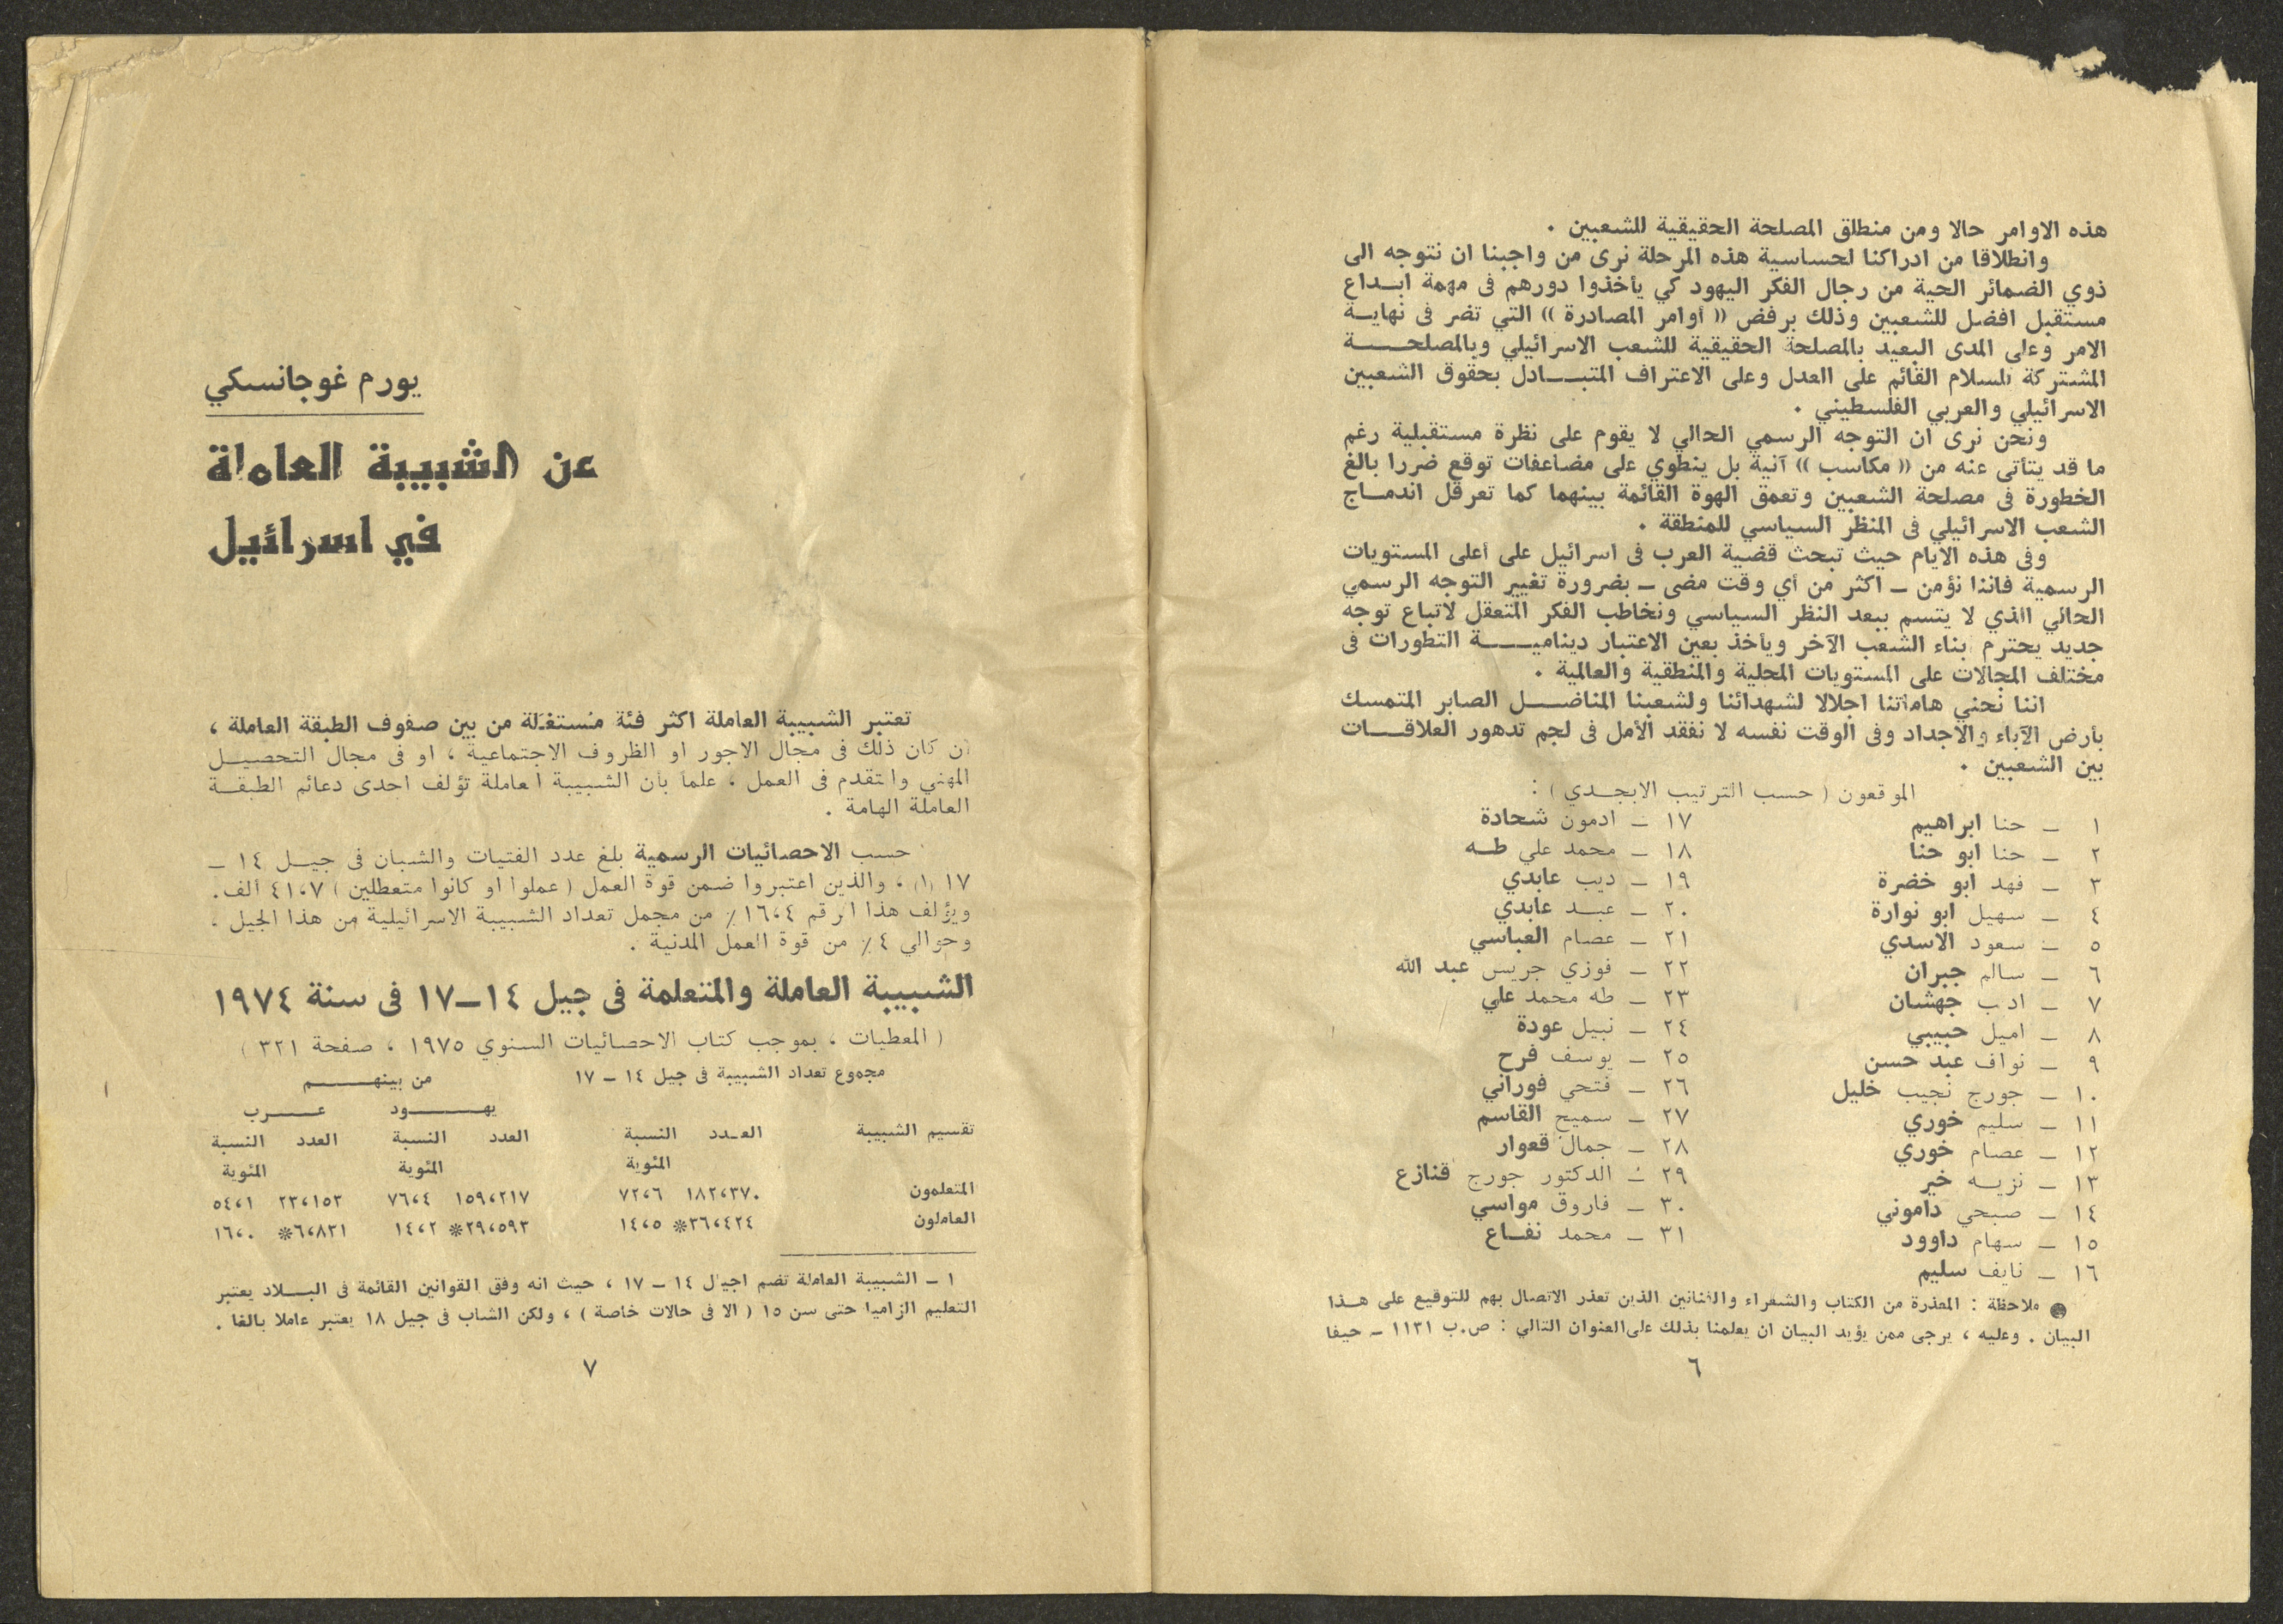 هذه الاوامر حالا ومن منطلق المصلحة الحقيقية للشعبين .
وانطلاقا من ادراكنا لحساسية هذه المرحلة نرى من واجبنا ان نتوجه الى
ذوي الضمائر الحية من رجال الفكر اليهود كي يأخذوا دورهم فى مهمة ابــداع
مستقبل افضل للشعبين وذلك برفض (( أوامر المصادرة )) التي تضر فى نهايــة
الامر وعلى المدى البعيد بالمصلحة الحقيقية للشعب الاسرائيلي وبالمصلحــــة
المشتركة للسلام القائم على العدل وعلى الاعتراف المتبــادل بحقوق الشعبين
الاسرائيلي والعربي الفلسطيني .
ونحن نرى ان التوجه الرسمي الحالي لا يقوم على نظرة مستقبلية رغم
ما قد يتأتى عنه من (( مكاسب )) آنية بل ينطوي على مضاعفات توقع ضررا بالغ
الخطورة فى مصلحة الشعبين وتعمق الهوة القائمة بينهما كما تعرقل اندمــاج
الشعب الاسرائيلي فى المنظر السياسي للمنطقة .
وفى هذه الايام حيث تبحث قضية العرب فى اسرائيل على أعلى المستويات
الرسمية فاننا نؤمن ــ اكثر من أي وقت مضى ــ بضرورة تغيير التوجه الرسمي
الحالي الذي لا يتسم ببعد النظر السياسي ونخاطب الفكر المتعقل لاتباع توجه
جديد يحترم بناء الشعب الآخر ويأخذ بعين الاعتبار ديناميــــة التطورات فى
مختلف المجالات على المستويات المحلية والمنطقية والعالمية .
اننا نحني هاماتنا اجلالا لشهدائنا ولشعبنا المناضــــل الصابر المتمسك
بأرض الآباء والاجداد وفى الوقت نفسه لا نفقد الأمل فى لجم تدهور العلاقــــات
بين الشعبين .
الموقعون ( حسب الترتيب الابجـدي ) :
١ ــ حنا ابراهيم
٢ ــ حنا ابو حنا
٣ ــ فهد ابو خضرة
٤ ــ سهيل ابو نوارة
٥ ــ سعود الاسدي
٦ ــ سالم جبران
٧ ــ ادب جهشان
٨ ــ اميل حبيبي
٩ ــ نواف عبد حسن
١٠ ــ جورج نجيب خليل
١١ ــ سليم خوري
١٢ ــ عصام خوري
١٣ ــ نزيــه خير
١٤ ــ صبحي داموني
١٥ ــ سهام داوود
١٦ ــ نايف سليم
١٧ ــ ادمون شحادة
١٨ ــ محمد علي طــه
١٩ ــ ديب عابدي
٢٠ ــ عبــد عابدي
٢١ ــ عصام العباسي
٢٢ ــ فوزي جريس عبد الله
٢٣ ــ طه محمد علي
٢٤ ــ نبيل عودة
٢٥ ــ يوسف فرح
٢٦ ــ فتحي فوراني
٢٧ ــ سميح القاسم
٢٨ ــ جمال قعوار
٢٩ ــ الدكتور جورج قنازع
٣٠ ــ فاروق مواسي
٣١ ــ محمد نفــاع
● ملاحظة : المعذرة من الكتاب والشعراء والفنانين الذين تعذر الاتصال بهم للتوقيع على هــذا
البيان . وعليه ، يرجى ممن يؤيد البيان ان يعلمنا بذلك على العنوان التالي : ص.ب ١١٣١ ــ حيفا
٦
يورم غوجانسكي
عن الشبيبة العاملة
في اسرائيل
تعتبر الشبيبة العاملة اكثر فئة مستغلة من بين صفوف الطبقة العاملة ،
ان كان ذلك فى مجال الاجور او الظروف الاجتماعية ، او فى مجال التحصيــل
المهني والتقدم فى العمل ، علما بأن الشبيبة العاملة تؤلف احدى دعائم الطبقــة
العاملة الهامة .
حسب الاحصائيات الرسمية بلغ عدد الفتيات والشبان فى جيــل ١٤ ــ
١٧ (١) ، والذين اعتبروا ضمن قوة العمل ( عملوا او كانوا متعطلين ) ٤١،٧ الف .
ويؤلف هذا الرقم ١٦،٤٪ من مجمل تعداد الشبيبة الاسرائيلية من هذا الجيل .
وحوالي ٤٪ من قوة العمل المدنية .
الشبيبة العاملة والمتعلمة فى جيل ١٤ــ١٧ فى سنة ١٩٧٤
( المعطيات ، بموجب كتاب الاحصائيات السنوي ١٩٧٥ ، صفحة ٣٢١ )
مجموع تعداد الشبيبة فى جيل ١٤ ــ ١٧ من بينهــــم
يهـــــود عــــرب
تقسيم الشبيبة العـدد النسبة العدد النسبة العدد النسبة
المئوية المئوية المئوية
المتعلمون ١٨٢،٣٧٠ ٧٢،٦ ١٥٩،٢١٧ ٧٦،٤ ٢٣،١٥٣ ٥٤،١
العاملون ٣٦،٤٢٤* ١٤،٥ ٢٩،٥٩٣* ١٤،٢ ٦،٨٣١* ١٦،٠
١ ــ الشبيبة العاملة تضم اجيال ١٤ ــ ١٧ ، حيث انه وفق القوانين القائمة فى البــلاد يعتبر
التعليم الزاميا حتى سن ١٥ ( الا فى حالات خاصة ) ، ولكن الشاب فى جيل ١٨ يعتبر عاملا بالغا .
٧